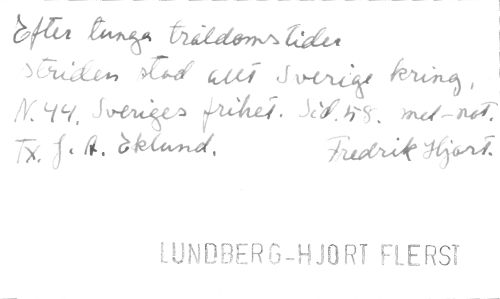 Efter tunga träldomstider
striden stod allt Sverige kring,
N. 44. Sveriges frihet. Sid. 58. mel-not.
Tx. J. A. Eklund. Fredrik Hjort.
LUNDBERG-HJORT FLERST